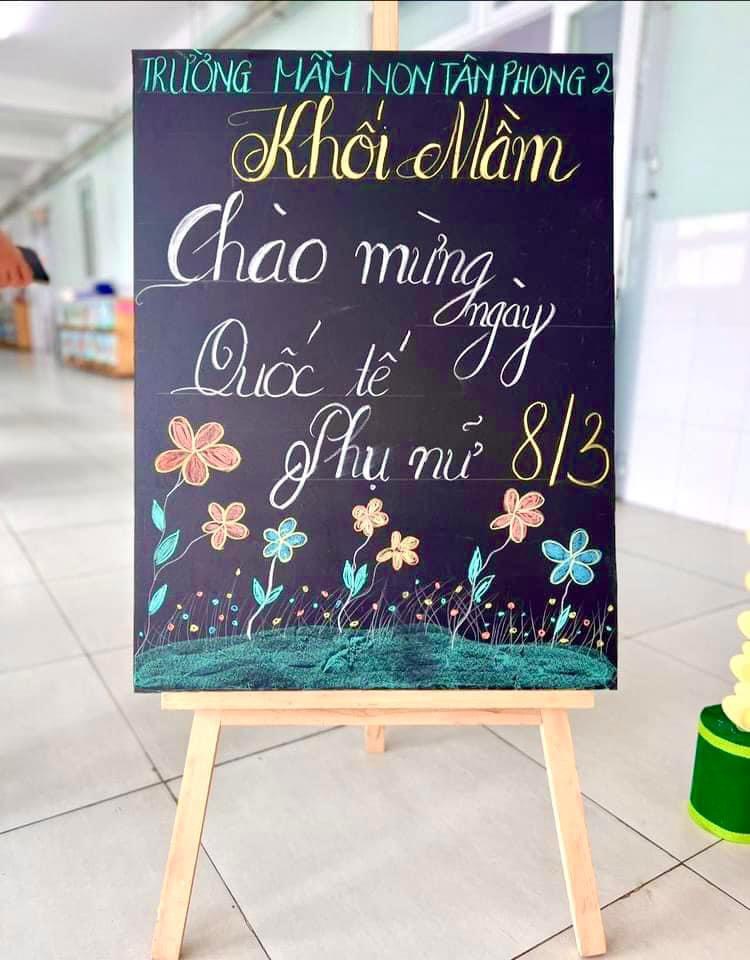 TRƯỜNG MẦM NON TÂN PHONG 2
Khối Mầm
Chào mừng
ngày
Quốc tế
Phụ nữ 8/3